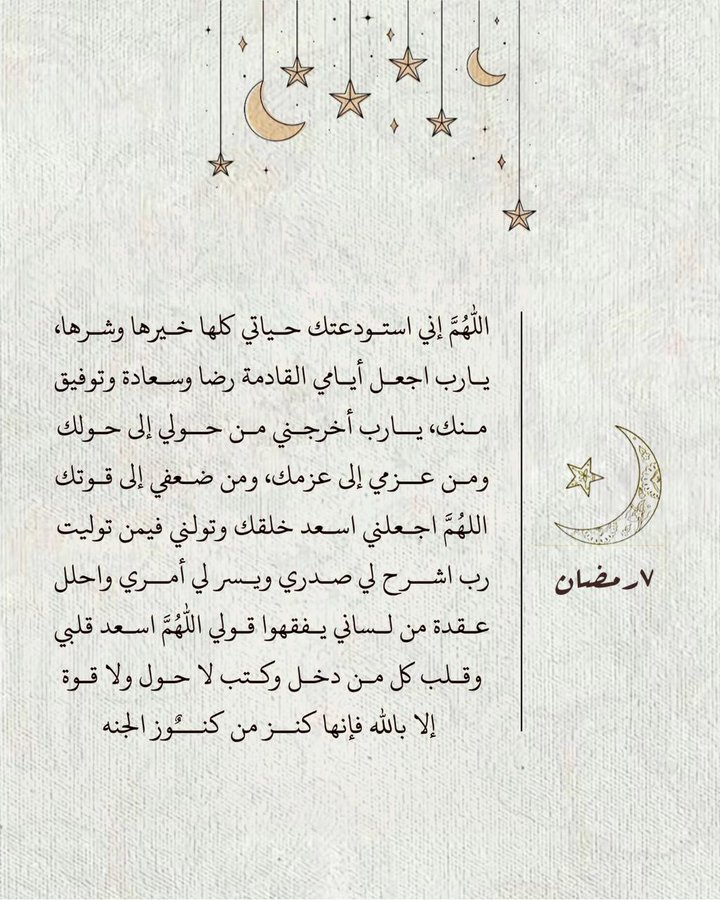 اللّٰهُمَّ إني استودعتك حياتي كلها خيرها وشرها،
يارب اجعل أيامي القادمة رضا وسعادة وتوفيق
منك، يارب أخرجني من حولي إلى حولك
ومن عزمي إلى عزمك، ومن ضعفي إلى قوتك
اللهُمَّ اجعلني اسعد خلقك وتولني فيمن توليت
رب اشرح لي صدري ويسر لي أمري واحلل
عقدة من لساني يفقهوا قولي اللّٰهُمَّ اسعد قلبي
وقلب كل من دخل وكتب لا حول ولا قوة
إلا بالله فإنها كنز من كنوٌز الجنه
٧رمضان